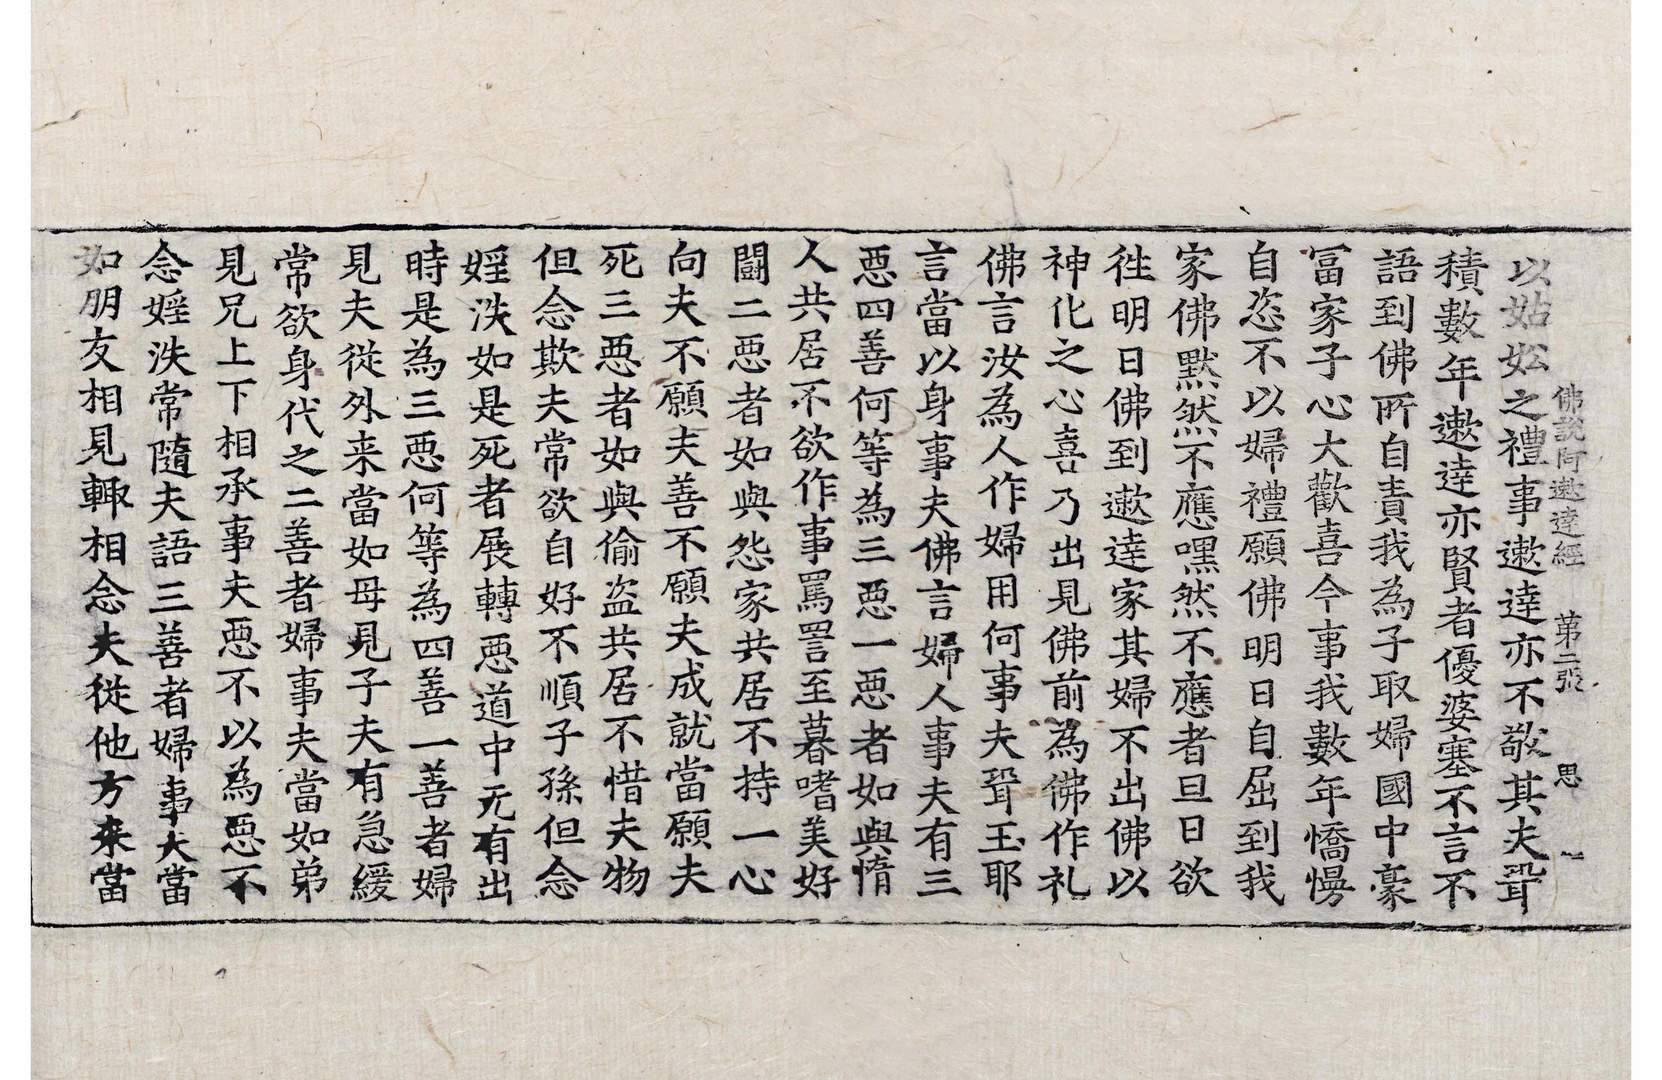 佛說阿遬達經　第二張　思
以姑妐之禮事遬達亦不敬其夫聟
積數年遬達亦賢者優婆塞不言不
語到佛所自責我為子取婦國中豪
冨家子心大歡喜今事我數年憍慢
自恣不以婦禮願佛明日自屈到我
家佛默然不應嘿然不應者旦日欲
徃明日佛到遬達家其婦不出佛以
神化之心喜乃出見佛前為佛作礼
佛言汝為人作婦用何事夫聟玉耶
言當以身事夫佛言婦人事夫有三
惡四善何等為三惡一惡者如與惰
人共居不欲作事罵詈至暮嗜美好
鬪二惡者如與怨家共居不持一心
向夫不願夫善不願夫成就當願夫
死三惡者如與偷盗共居不惜夫物
但念欺夫常欲自好不順子孫但念
婬泆如是死者展轉惡道中无有出
時是為三惡何等為四善一善者婦
見夫從外来當如母見子夫有急緩
常欲身代之二善者婦事夫當如弟
見兄上下相承事夫惡不以為惡不
念婬泆常隨夫語三善者婦事夫當
如朋友相見輙相念夫從他方來當